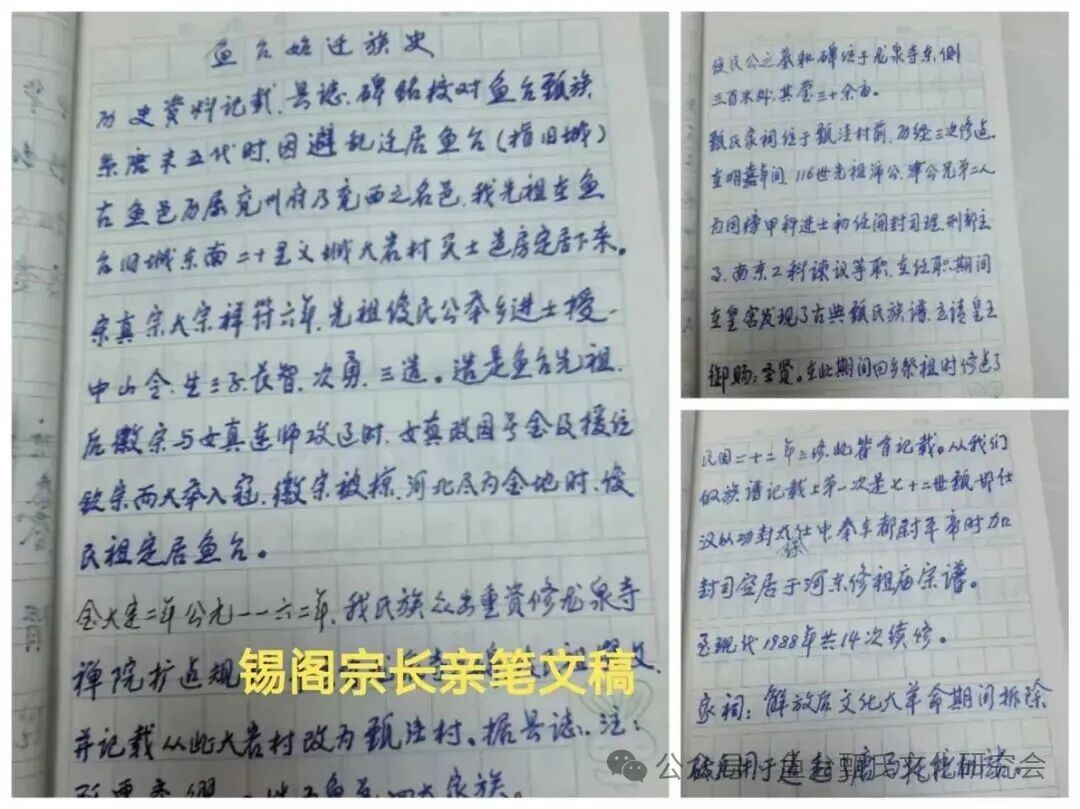 鱼台始迁族史
历史资料记载、县志、碑铭校对鱼台甄族
系唐末五代时,因避乱迁居鱼台(指旧城)
古鱼邑历属兖州府乃兖西之名邑,我先祖在鱼
台旧城东南二十里义城大岩村买土造房定居下来。
宗真宗大宗祥符六年,先祖俊民公奉乡进士授
中山令,生三子,长智、次勇、三造。造是鱼台先祖,
后徽宗与女真连师攻辽时,女真改国号金及援位
钦宗两大举入寇,徽宗被掠,河北尽为金地时,俊
民祖定居鱼台。
金大定二年公元一一六二年,我民族众出重资修龙泉寺
禅院扩造规
并记载从此大岩村改为甄洼村。据县志:注:
四大家族。
锡阁宗长亲笔文稿
俊民公之墓和碑位于龙泉寺东侧
三百米处,其茔三十余亩。
甄氏家祠位于甄洼村前,历经三次修造,
在明嘉年间,116世先祖沛公、津公兄弟二人
为同榜甲科进士初任开封司理,刑部主
事,南京工科谏议等职,在任职期间
在皇宫发现了古典甄氏族谱,立请皇王
御赐:圣贤。在此期间回乡祭祖时修造了
民国二十二年三修,此皆有记载。从我们
的族谱记载上第一次是七十二世甄邯仕
汉以功封太保仕中奉车都尉平帝时加
封司空居于河东修祖庙宗谱。
至现代1988年共14次续修。
家祠:解放后文化大革命期间拆除
公众号·鱼台甄氏文化研究会